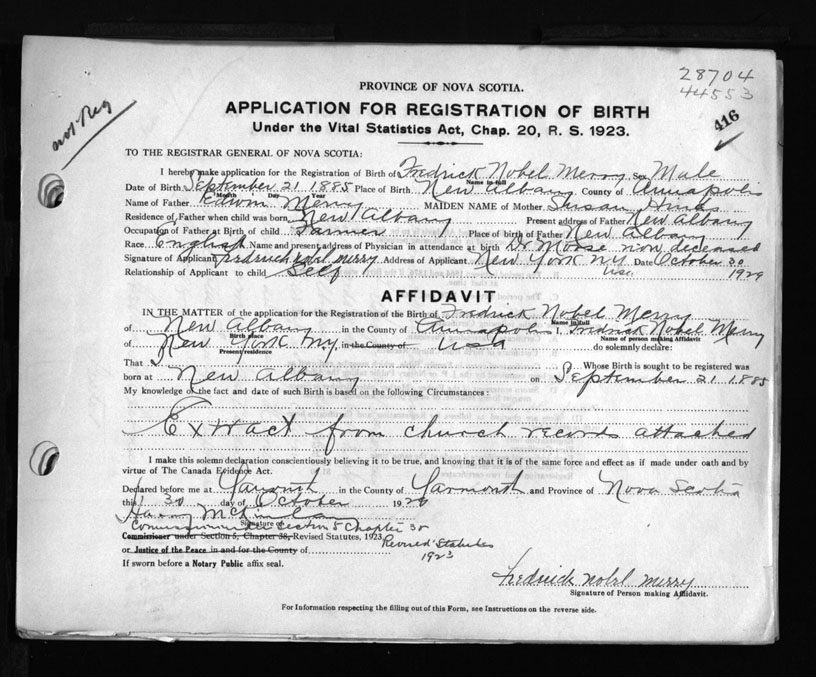 28704
44553
416
not Reg
PROVINCE OF NOVA SCOTIA.
APPLICATION FOR REGISTRATION OF BIRTH
Under the Vital Statistics Act, Chap. 20, R. S. 1923.
TO THE REGISTRAR GENERAL OF NOVA SCOTIA:
I hereby make application for the Registration of Birth of Fredrick Nobel Merry Sex Male
Name in full
Date of Birth September 21 1885 Place of Birth New Albany County of Annapolis
Month Day Year
Name of Father Edwin Merry MAIDEN NAME of Mother Susan
Residence of Father when child was born New Albany Present address of Father New Albany
Occupation of Father at Birth of child Farmer Place of birth of Father New Albany
Race English Name and present address of Physician in attendance at birth Dr. Morse now deceased
Signature of Applicant Fredrick Nobel Merry Address of Applicant New York NY Date October 30
Relationship of Applicant to child Self USA 1929
AFFIDAVIT
IN THE MATTER of the application for the Registration of the Birth of Fredrick Nobel Merry
Name in full
of New Albany in the County of Annapolis I, Fredrick Nobel Merry
Birth place Name of person making Affidavit
of New York NY in the County of USA do solemnly declare:
Present residence
That I Whose Birth is sought to be registered was
born at New Albany on September 21 1885
My knowledge of the fact and date of such Birth is based on the following Circumstances:
Extract from church records attached
I make this solemn declaration conscientiously believing it to be true, and knowing that it is of the same force and effect as if made under oath and by
virtue of The Canada Evidence Act.
Declared before me at Yarmouth in the County of Yarmouth and Province of Nova Scotia
this 30 day of October 19
Harry McKinlay
Signature of
Commissioner Section 5 Chapter 38
Commissioner under Section 5, Chapter 38, Revised Statutes, 1923
Revised Statutes
or Justice of the Peace in and for the County of
1923
If sworn before a Notary Public affix seal.
Fredrick Nobel Merry
Signature of Person making Affidavit.
For Information respecting the filling out of this Form, see Instructions on the reverse side.